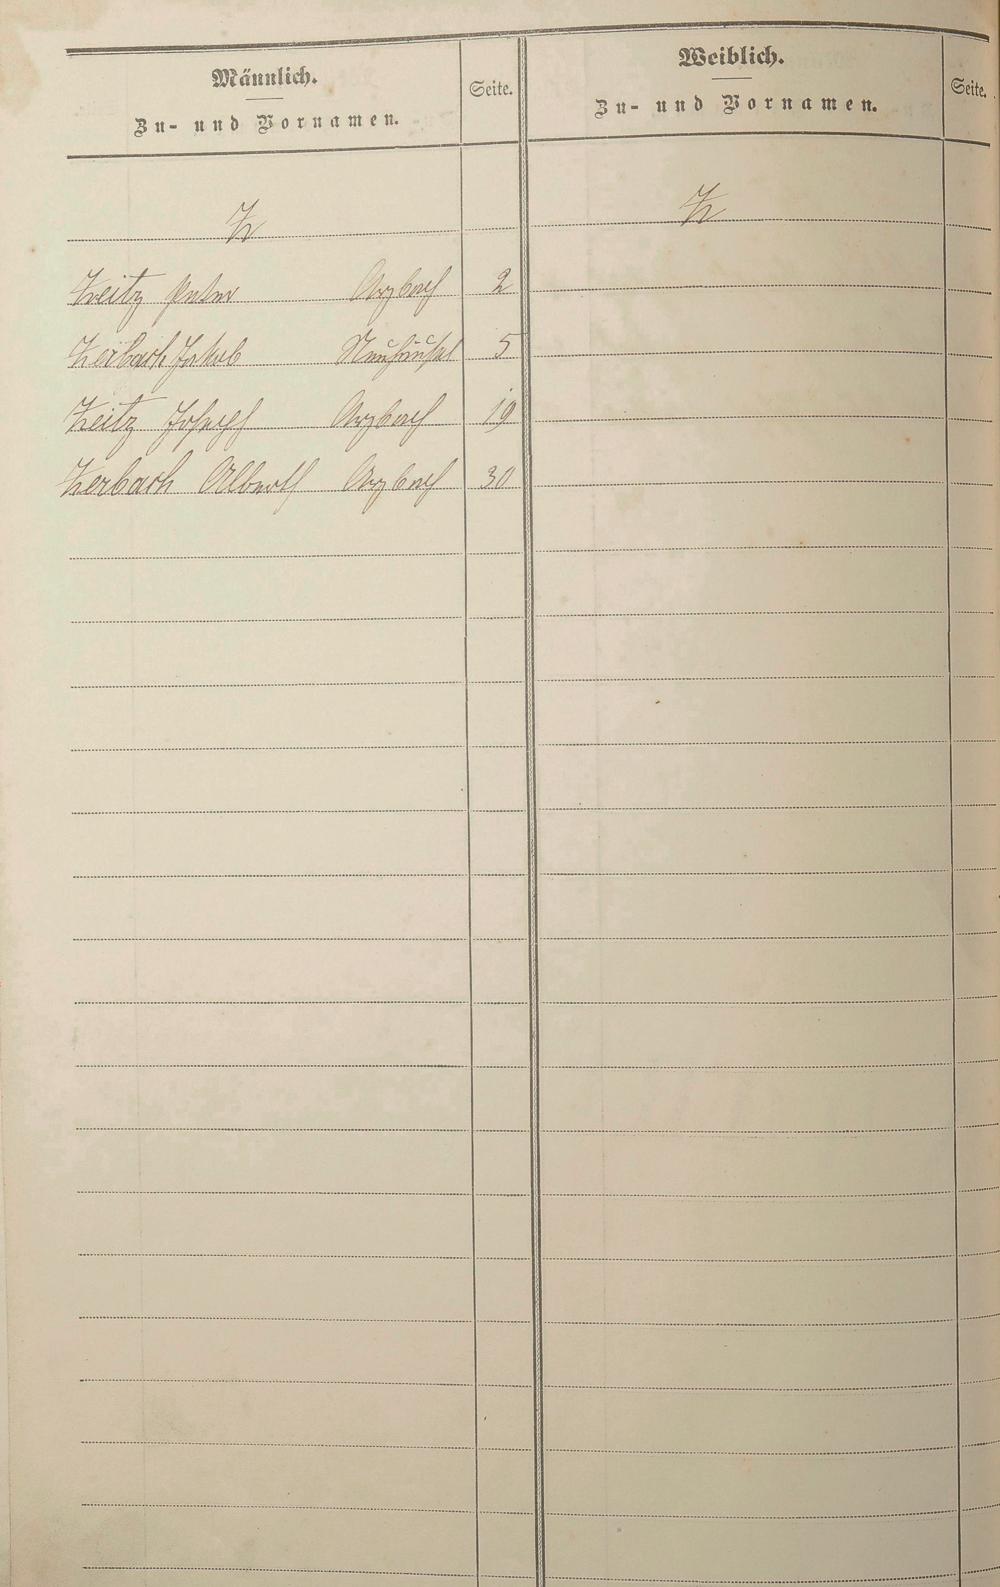 Männlich.
Zu- und Vornamen.
Seite.
Weiblich.
Zu- und Vornamen.
Seite.
Z
Z
Zeitz Peter Arzbach 2
Zerbach Jakob Neuhäusel 5
Zeitz Joseph Arzbach 19
Zerbach Alberth Arzbach 30